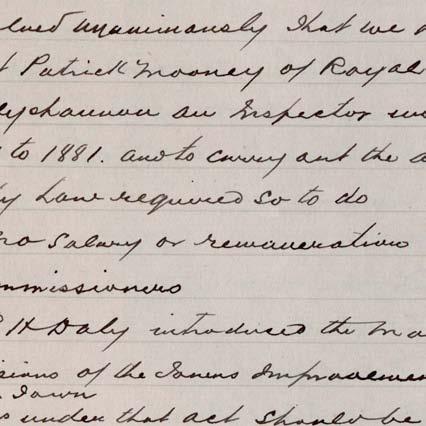 lved unanimously that we
t Patrick Mooney of Royal
lyshannon an Inspector
to 1881. and to carry out the a
by Law required so to do
no Salary or remuneration
ommissioners
H Daly introduced the
sions of the Towns Improvemen
Town
s under that act should be